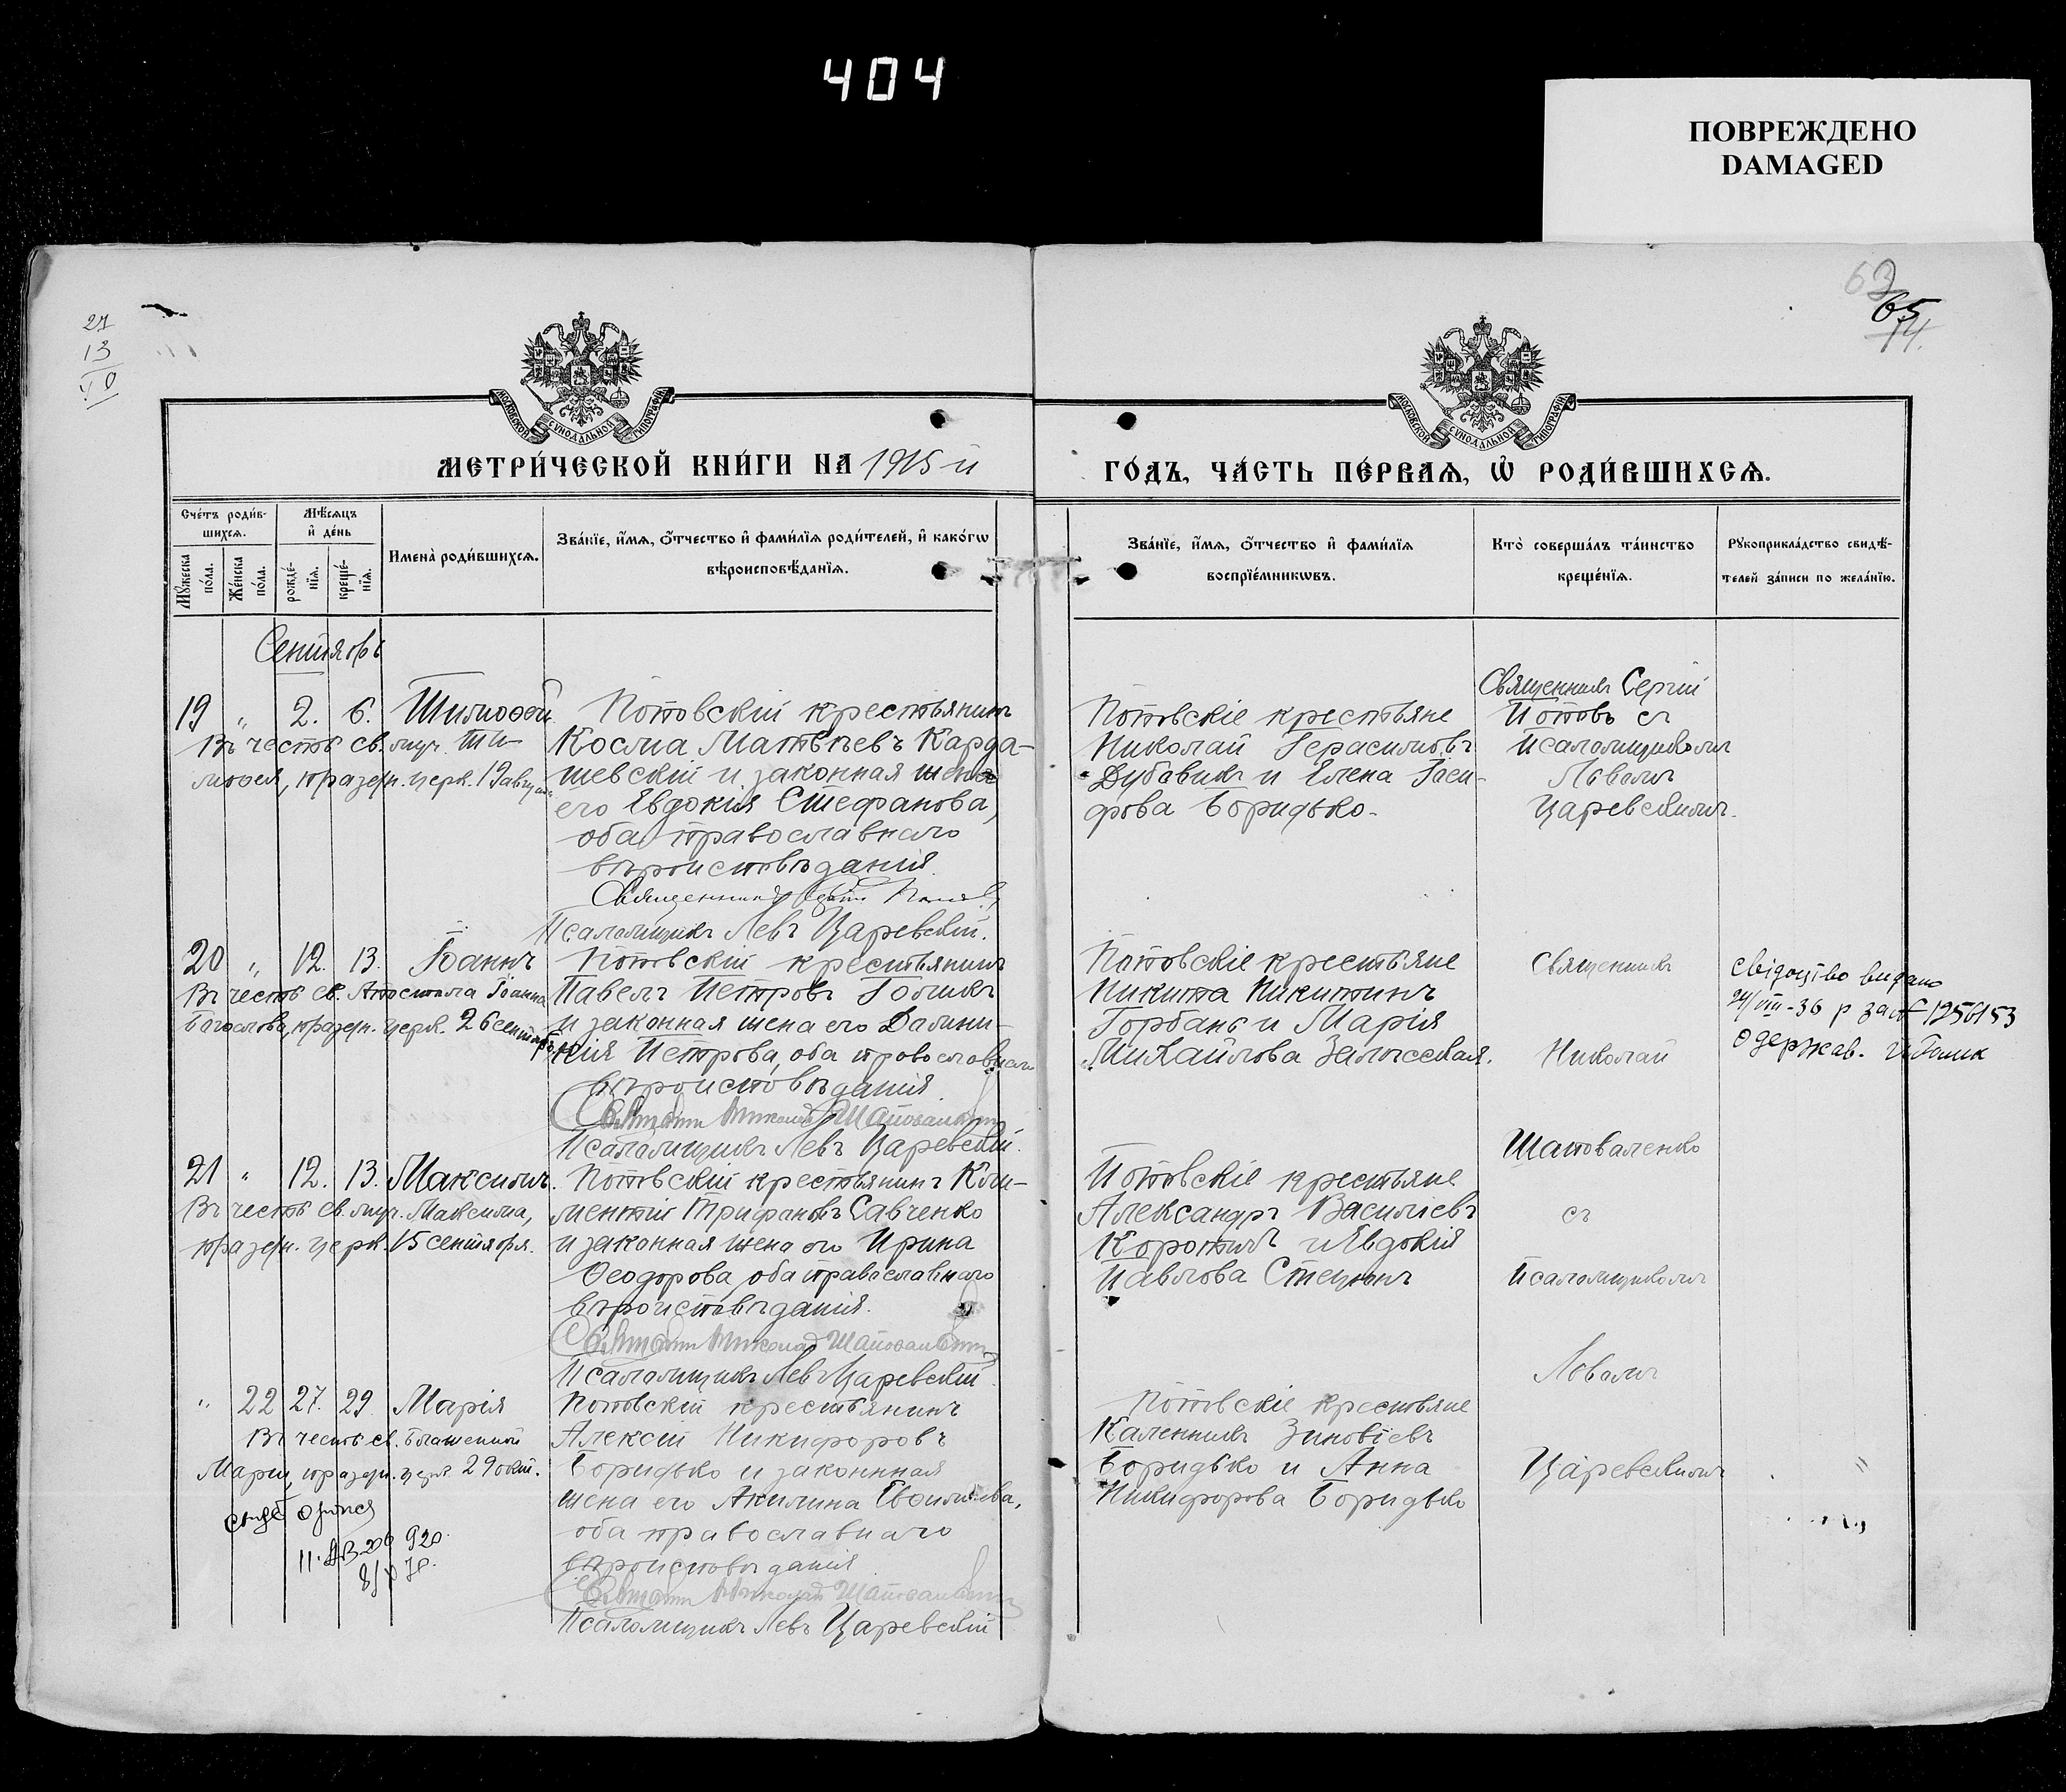 404
ПОВРЕЖДЕНО
DAMAGED
27
13
63
65
14.
МОСКОВСКОЙ СѴНОДАЛЬНОЙ ТИПОГРАФІИ
МОСКОВСКОЙ СѴНОДАЛЬНОЙ ТИПОГРАФІИ
МЕТРИ́ЧЕСКОЙ КНИ́ГИ НА 1915 й
ГО́ДЪ, ЧА́СТЬ ПЕ́РВАѦ, Ѡ҆ РОДИ́ВШИХСѦ.
Сче́тъ роди́в-
шихсѧ.
Мꙋ́жеска по́ла.
Же́нска по́ла.
Мѣ́сѧцъ
и҆ де́нь
рожде́-
нїѧ.
креще́-
нїѧ.
Имена̀ роди́вшихсѧ.
Зва́нїе, и҆́мѧ, ѻ҆́тчество и҆ фами́лїѧ роди́телей, и҆ како́гѡ
вѣроисповѣ́данїѧ.
Зва́нїе, и҆́мѧ, ѻ҆́тчество и҆ фами́лїѧ
воспрїе́мникѡвъ.
Кто̀ соверша́лъ та́инство
креще́нїѧ.
Рꙋкоприкла́дство свидѣ́-
телей за́писи по жела́нїю.
Сентябрь
19 " 2. 6. Тимоѳей
Въ честь св. муч. Ти-
моѳея, праздн. церк. 19 август.
Поповскій крестьянинъ
Косма Матвѣевъ Карда-
шевскій и законная жена
его Евдокія Стефанова,
оба православнаго
вѣроисповѣданія.
Священникъ Сергій Поповъ
Псаломщикъ Левъ Царевскій.
Поповскіе крестьяне
Николай Герасимовъ
Дубавикъ и Елена Іоси-
фова Боридько.
Священникъ Сергій
Поповъ съ
псаломщикомъ
Львомъ
Царевскимъ.
20 " 12. 13. Іоаннъ
Въ честь св. Апостола Іоанна
Богослова, праздн. церк. 26 сентября
Поповскій крестьянинъ
Павелъ Петровъ Голикъ
и законная жена его Домни-
кія Петрова, оба православнаго
вѣроисповѣданія.
Священникъ Николай Шаповаленко
Псаломщикъ Левъ Царевскій.
Поповскіе крестьяне
Никита Никитинъ
Горбань и Марія
Михайлова Залѣсская.
Священникъ
Николай
Шаповаленко
съ
псаломщикомъ
Львомъ
Царевскимъ
свідоцтво видано
24/VIII-36 р за № 1256153
Одержав. Голик
21 " 12. 13. Максимъ.
Въ честь св. муч. Максима,
праздн. церк. 15 сентября.
Поповскій крестьянинъ Кли-
ментій Трифановъ Савченко
и законная жена его Ирина
Ѳеодорова, оба православнаго
вѣроисповѣданія.
Священникъ Николай Шаповаленко
Псаломщикъ Левъ Царевскій
Поповскіе крестьяне
Александръ Василіевъ
Коротичъ и Евдокія
Павлова Стецюнъ
" 22 27. 29 Марія
Въ честь св. Блаженной
Маріи, праздн. церк. 29 окт.
11. 920.
Поповскій крестьянинъ
Алексій Никифоровъ
Боридько и законнная
жена его Акилина
оба православнаго
вѣроисповѣданія
Священникъ Николай Шаповаленко
Псаломщикъ Левъ Царевскій
Поповскіе крестьяне
Каленникъ Зиновіевъ
Боридько и Анна
Никифорова Боридько